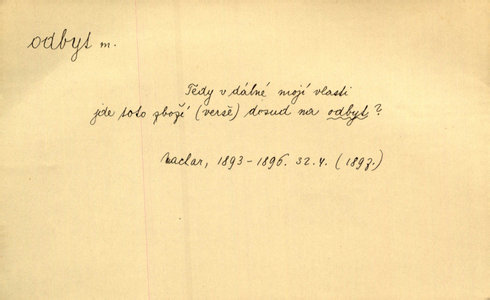 odbyt m.
Tedy v dálné mojí vlasti
jde toto zboží (verše) dosud na odbyt?
Machar, 1893–1896. 32.4. (1897.)